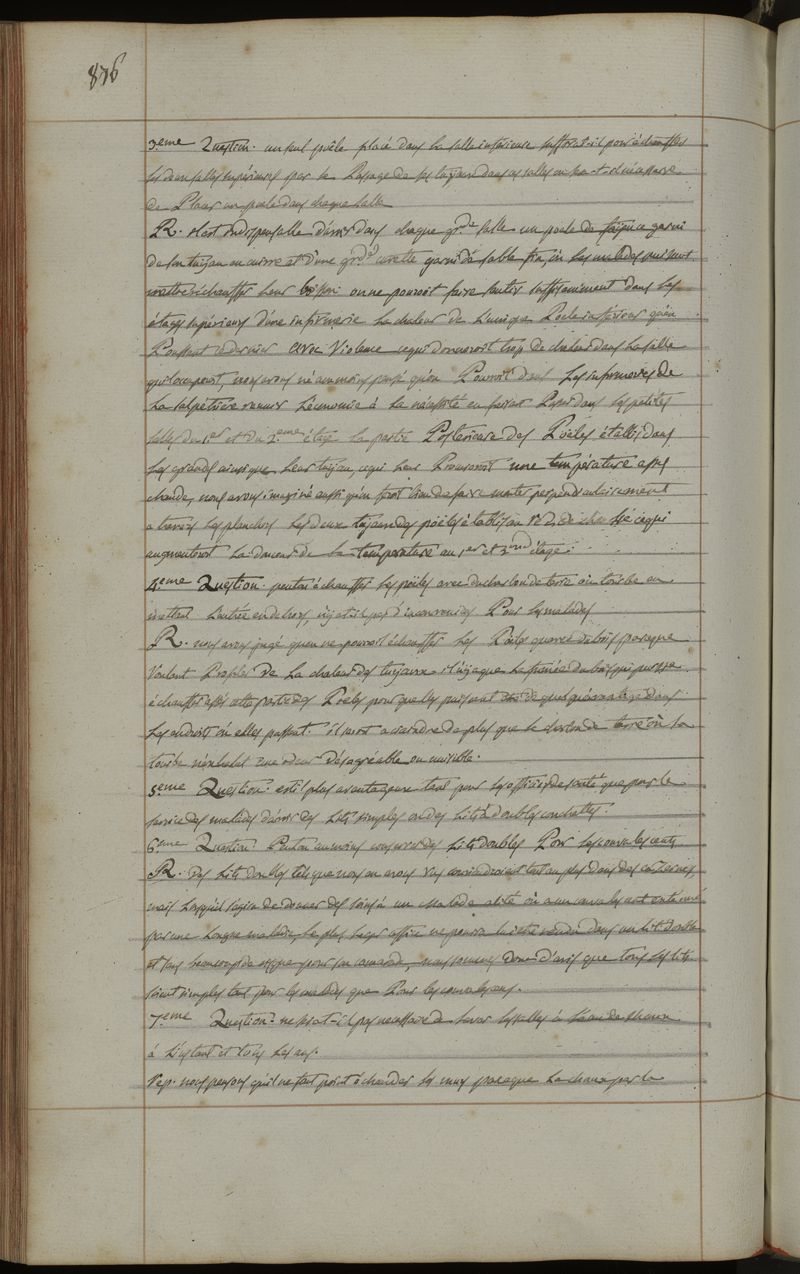 876
3.eme Question. un seul poële placé dans la salle inférieure suffiroit-il pour échauffer
les deux salles supérieures par le Passage de ses tuyaux dans ces salles ou sera-t-il nécessaire
de Placer un poele dans chaque Salle
R. il est indispensable d'avoir dans chaque gr.de Salle un poele de faïance garni
de son tuyau en cuivre et d'une gr.de cuvette garni de sable fin, où les malades puissent
mettre échauffer leur boisson on ne pouroit faire sentir suffisamment dans les
étages supérieurs d'une infirmerie la chaleur de l'unique Poele inférieur qu'en
Poussant ce dernier avec Violence ce qui donneroit trop de chaleur dans la salle
qu'il occuperoit, nous avons néanmoins pensé qu'on Pouroit dans les infirmeries de
la salpétrière réunir l'économie à la nécessité en faisant Passer dans les petites
salles du 1.er et du 2.eme étage la partie Postérieure des Poëles établis dans
les grandes ainsi que leur tuyau, ce qui leur Procureroit une température assez
chaude, nous avons imaginé aussi qu'on feroit bien de faire monter perpendiculairement
a travers les planchers les deux tuyaux des poëles établis au rez de chaussée ce qui
augmenteroit la douceur de la température au 1.er et 2.me étage.
4.eme Question. peut on échauffer les poëles avec du charbon de terre ou tourbe en
mettant l'entrée en dehors, n'y at-il pas d'inconvenient Pour les malades
R. nous avons jugé qu'on ne pouvoit échauffer les Poëles qu'avec du bois parceque
Voulant Profiter de la chaleur des tuyaux il n'y a que la fumée du bois qui puisse
échauffer assez cette partie des Poeles pour qu'elles puissent être de quelque avantage dans
les endroits où elles passent. il seroit a craindre de plus que le charbon de terre ou la
tourbe n'exhalat une odeur désagréable ou nuisible.
5.eme Question. est il plus avantageux tant pour les officiers de santé que pour le
service des malades d'avoir des lits simples ou des lits à doubles couchettes.
6.eme Question Peut on au moins conserver des lits doubles Pour les convalescents
R. des lits doubles tels que nous en avons vus conviendroient tout au plus dans des casernes
mais lorsqu'il s'agira de donner des soins à un malade alité ou a un convalescent exténué
par une longue maladie, le plus leger office ne pourra lui être rendu dans un lit double
et sans beaucoup de risque pour son camarade, nous sommes donc d'avis que tous les lits
soient simples tant pour les malades que Pour les convalescens.
7.eme Question. ne sera t-il pas necessaire de laver les salles à l'eau de chaux
à l'instant et tous les ans.
Rep. nous pensons qu'il ne faut point échauder les murs parceque la chaux par la